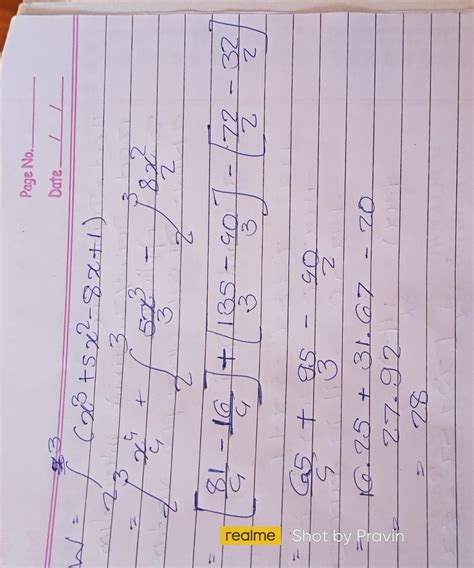 Page No.
Date / /
W = ∫₂³ (x³ + 5x² - 8x + 1)
= ∫₂³ x⁴/4 + ∫₂³ 5x³/3 - ∫₂³ 8x²/2
= [81/4 - 16/4] + [135/3 - 40/3] - [72/2 - 32/2]
= 65/4 + 95/3 - 40/2
= 16.25 + 31.67 - 20
= 27.92
= 28
realme Shot by Pravin